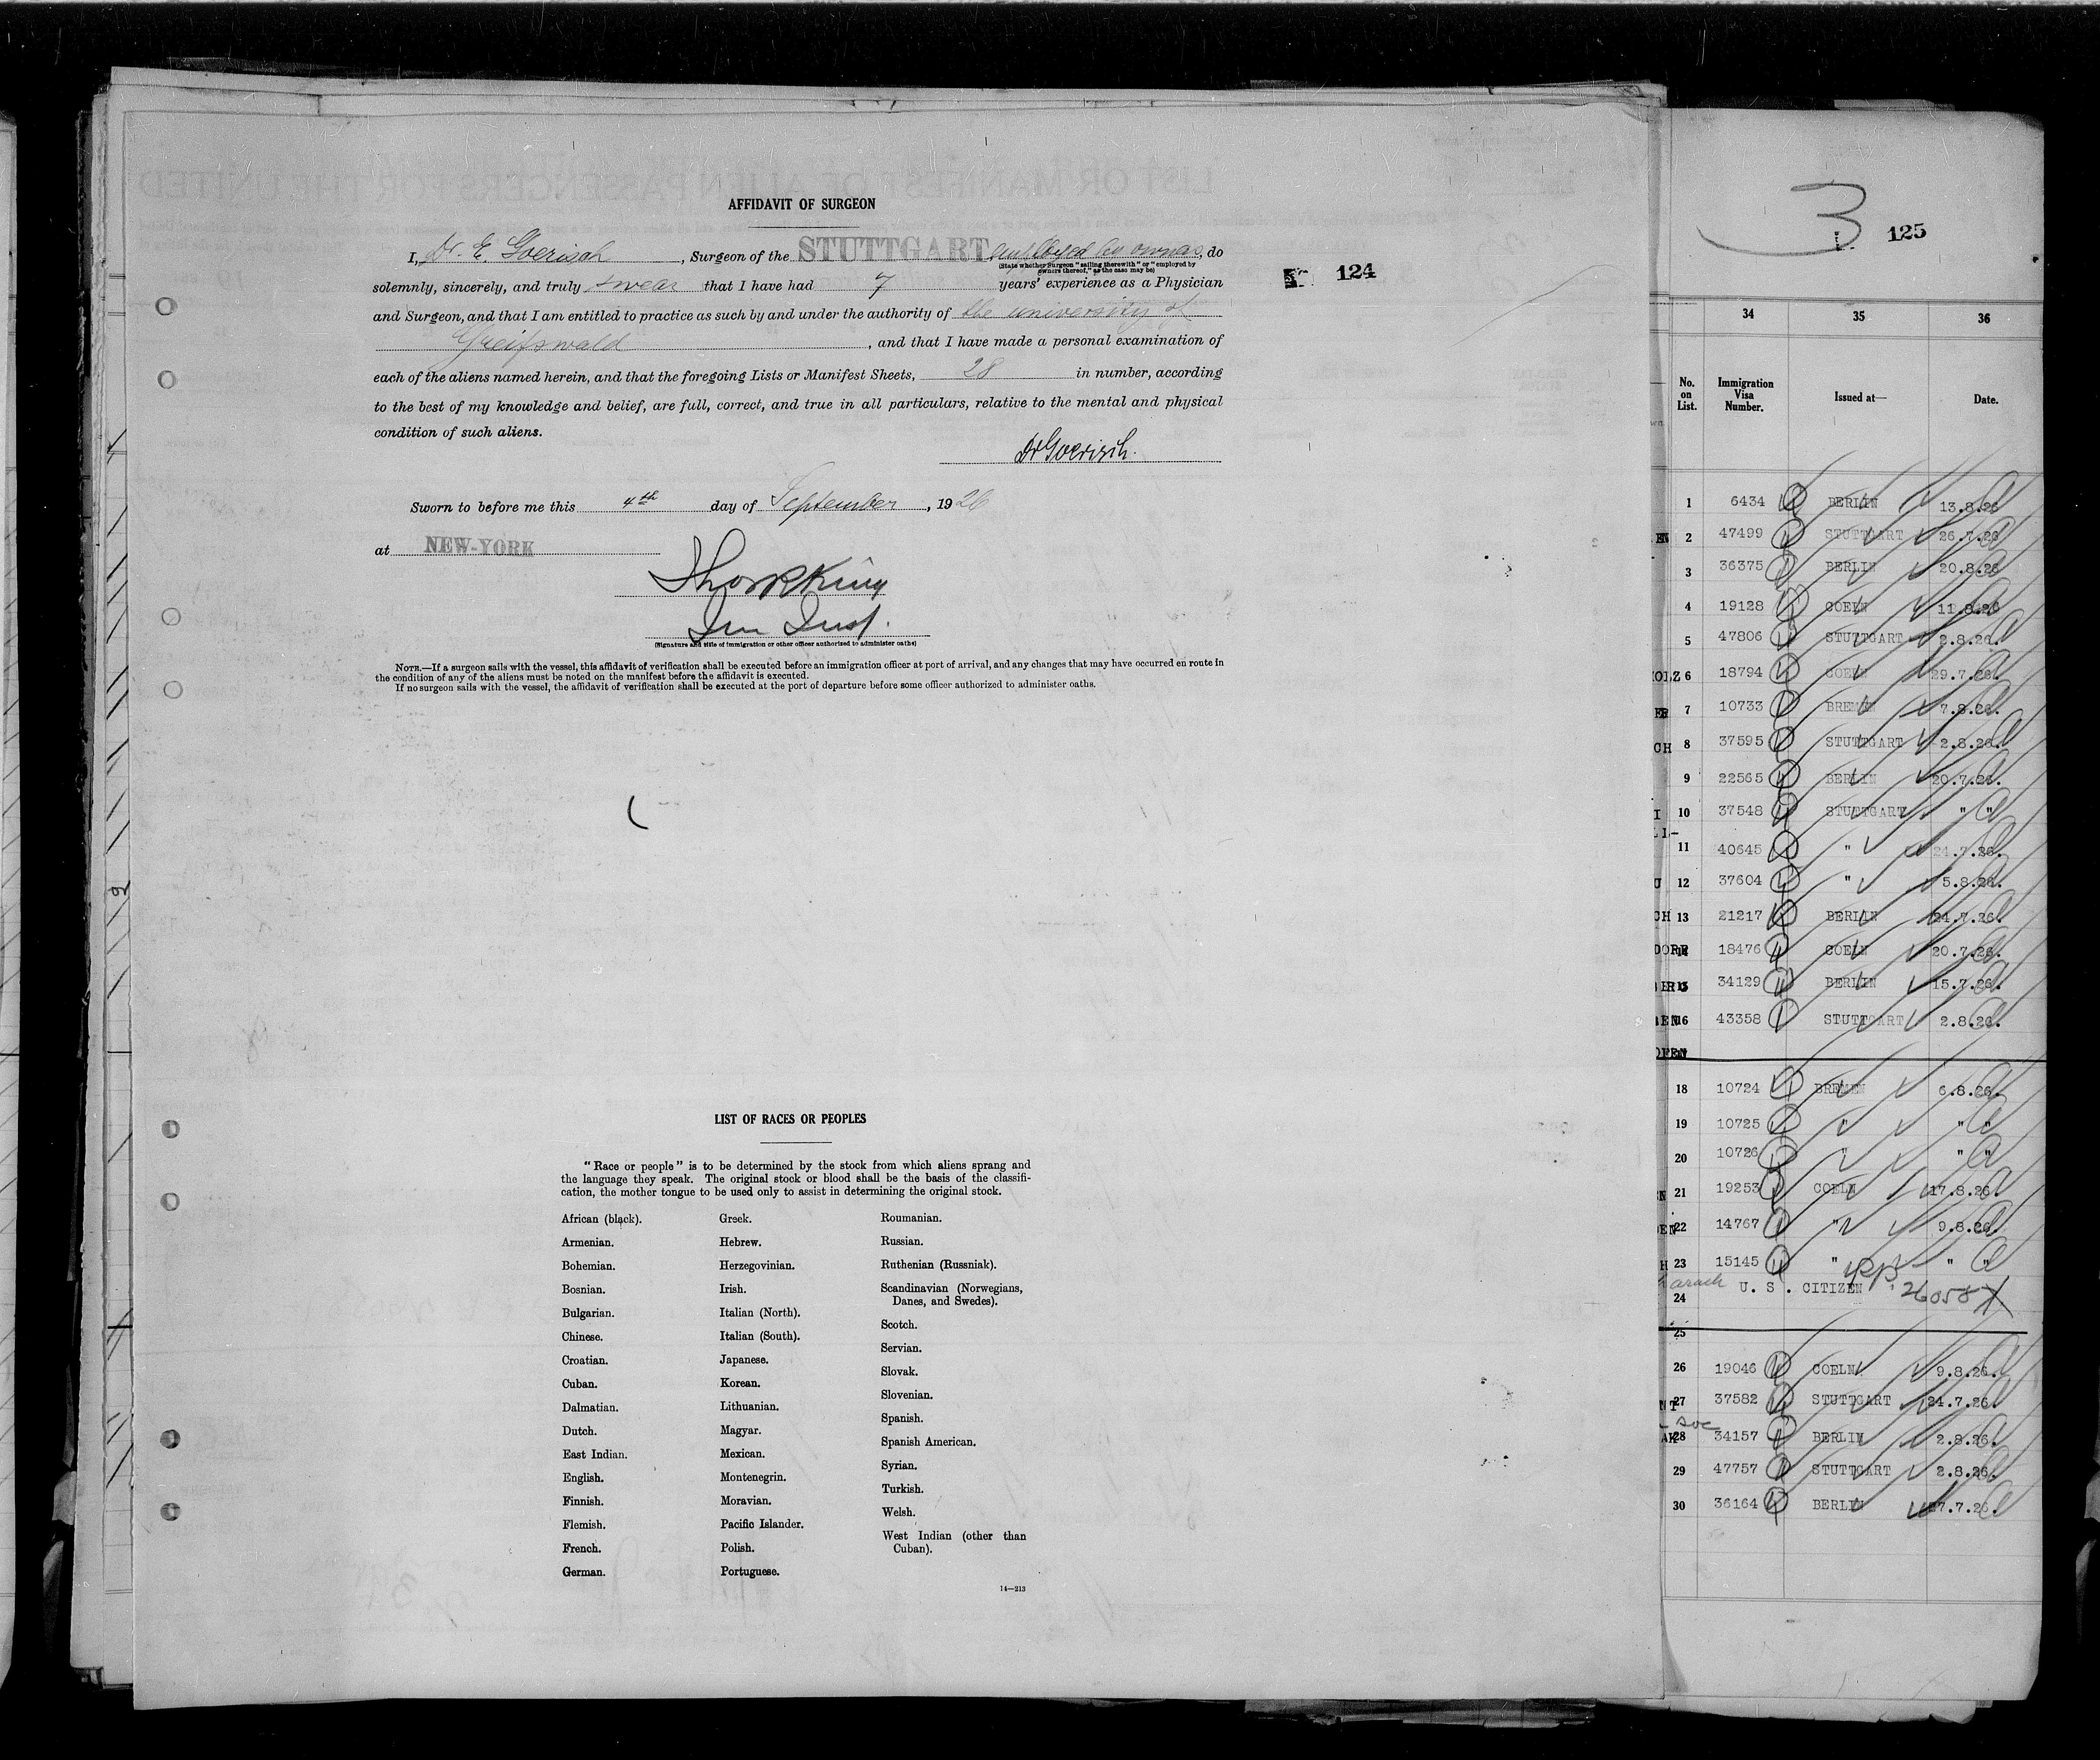 AFFIDAVIT OF SURGEON
I, Dr. E. Goerisch, Surgeon of the STUTTGART employed by owners, do
(State whether Surgeon "sailing therewith" or "employed by
owners thereof," as the case may be)
solemnly, sincerely, and truly swear that I have had 7 years' experience as a Physician
and Surgeon, and that I am entitled to practice as such by and under the authority of the university of
Greifswald, and that I have made a personal examination of
each of the aliens named herein, and that the foregoing Lists or Manifest Sheets, 28 in number, according
to the best of my knowledge and belief, are full, correct, and true in all particulars, relative to the mental and physical
condition of such aliens.
Dr Goerisch.
Sworn to before me this 4th day of September, 1926
at NEW-YORK
(Signature and title of immigration or other officer authorized to administer oaths)
NOTE.—If a surgeon sails with the vessel, this affidavit of verification shall be executed before an immigration officer at port of arrival, and any changes that may have occurred en route in
the condition of any of the aliens must be noted on the manifest before the affidavit is executed.
If no surgeon sails with the vessel, the affidavit of verification shall be executed at the port of departure before some officer authorized to administer oaths.
124
LIST OF RACES OR PEOPLES
"Race or people" is to be determined by the stock from which aliens sprang and
the language they speak. The original stock or blood shall be the basis of the classifi-
cation, the mother tongue to be used only to assist in determining the original stock.
African (black).
Armenian.
Bohemian.
Bosnian.
Bulgarian.
Chinese.
Croatian.
Cuban.
Dalmatian.
Dutch.
East Indian.
English.
Finnish.
Flemish.
French.
German.
Greek.
Hebrew.
Herzegovinian.
Irish.
Italian (North).
Italian (South).
Japanese.
Korean.
Lithuanian.
Magyar.
Mexican.
Montenegrin.
Moravian.
Pacific Islander.
Polish.
Portuguese.
Roumanian.
Russian.
Ruthenian (Russniak).
Scandinavian (Norwegians,
Danes, and Swedes).
Scotch.
Servian.
Slovak.
Slovenian.
Spanish.
Spanish American.
Syrian.
Turkish.
Welsh.
West Indian (other than
Cuban).
14—213
3
125
34 35 36
No. on List. Immigration Visa Number. Issued at— Date.
1 6434 BERLIN 13.8.26
2 47499 STUTTGART 26.7.26
3 36375 BERLIN 20.8.26
4 19128 COELN 11.8.26
5 47806 STUTTGART 2.8.26.
6 18794 COELN 29.7.26.
7 10733 BREMEN 7.8.26.
8 37595 STUTTGART 2.8.26.
9 22565 BERLIN 20.7.26.
10 37548 STUTTGART " "
11 40645 " 24.7.26.
12 37604 " 5.8.26.
13 21217 BERLIN 24.7.26.
14 18476 COELN 20.7.26.
15 34129 BERLIN 15.7.26.
16 43358 STUTTGART 2.8.26.
18 10724 BREMEN 6.8.26.
19 10725 " " "
20 10726 " " "
21 19253 COELN 17.8.26.
22 14767 " 9.8.26.
23 15145 " " "
24 U. S. CITIZEN
25
26 19046 COELN 9.8.26.
27 37582 STUTTGART 24.7.26.
28 34157 BERLIN 2.8.26.
29 47757 STUTTGART 2.8.26.
30 36164 BERLIN 27.7.26.